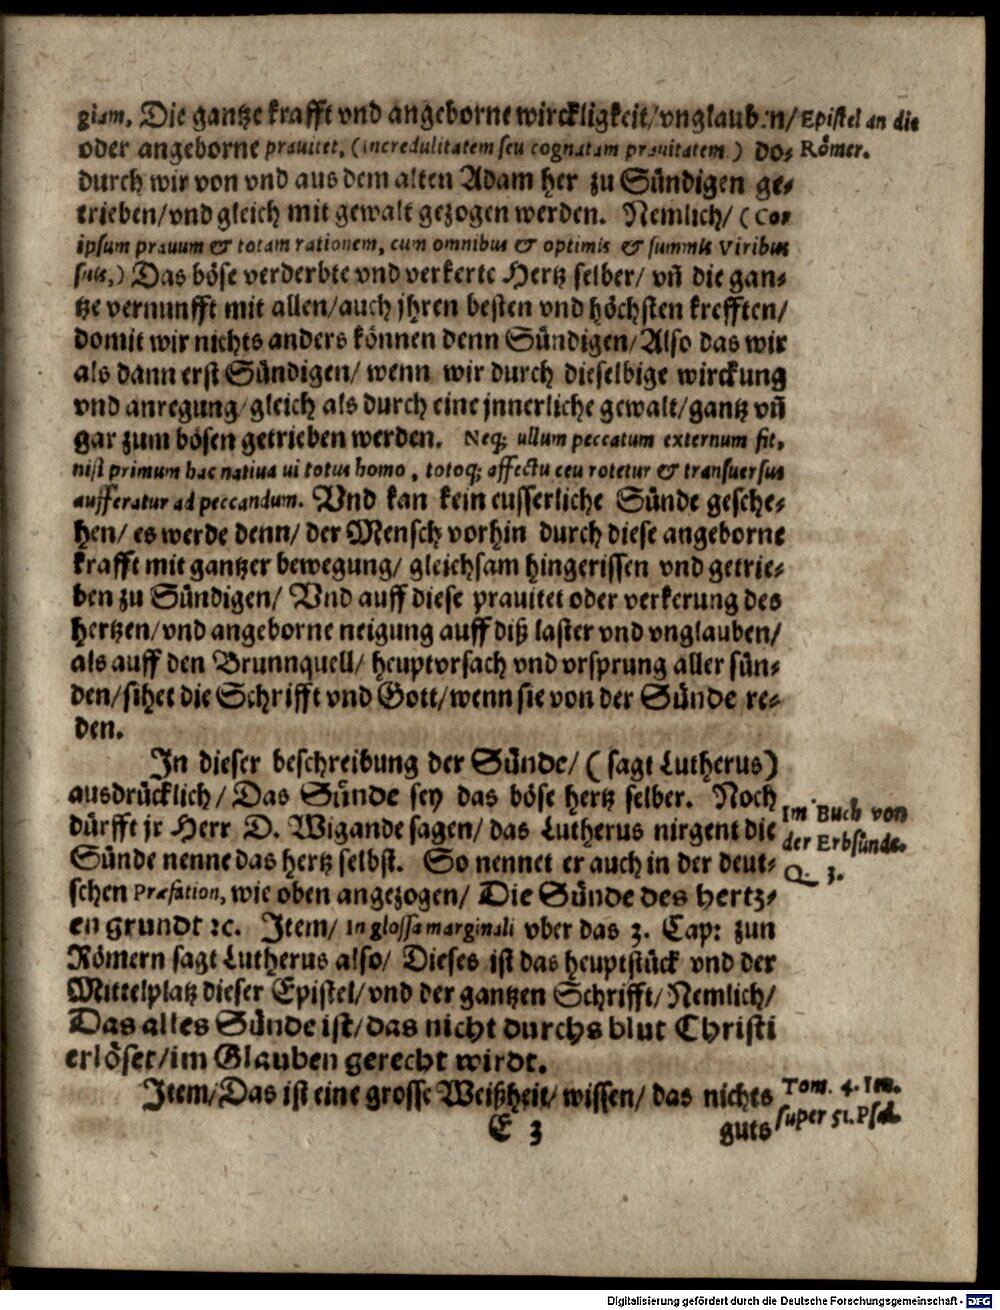 giam, Die gantze krafft vnd angeborne wirckligkeit/vnglauben/ Epistel an die
oder angeborne prauitet, (incredulitatem seu cognatam prauitatem) do- Römer.
durch wir von vnd aus dem alten Adam her zu Sündigen ge-
trieben/vnd gleich mit gewalt gezogen werden. Nemlich/ (Cor
ipsum prauum & totam rationem, cum omnibus & optimis & summis viribus
suis,) Das böse verderbte vnd verkerte Hertz selber/ vn̄ die gan-
tze vernunfft mit allen/auch jhren besten vnd höchsten krefften/
domit wir nichts anders können denn Sündigen/Also das wir
als dann erst Sündigen/ wenn wir durch dieselbige wirckung
vnd anregung/gleich als durch eine jnnerliche gewalt/gantz vn̄
gar zum bösen getrieben werden. Neq; ullum peccatum externum fit,
nisi primum hac natiua ui totus homo, totoq; affectu ceu rotetur & transuersus
aufferatur ad peccandum. Vnd kan kein eusserliche Sünde gesche-
hen/ es werde denn/ der Mensch vorhin durch diese angeborne
krafft mit gantzer bewegung/ gleichsam hingerissen vnd getrie-
ben zu Sündigen/ Vnd auff diese prauitet oder verkerung des
hertzen/vnd angeborne neigung auff diß laster vnd vnglauben/
als auff den Brunnquell/ heuptvrsach vnd vrsprung aller sün-
den/sihet die Schrifft vnd Gott/wenn sie von der Sünde re-
den.
In dieser beschreibung der Sünde/ (sagt Lutherus)
ausdrücklich/ Das Sünde sey das böse hertz selber. Noch
dürfft jr Herr D. Wigande sagen/ das Lutherus nirgent die
Im Buch von
der Erbsünde.
Q. 3.
Sünde nenne das hertz selbst. So nennet er auch in der deut-
schen Præfation, wie oben angezogen/ Die Sünde des hertz-
en grundt ꝛc. Item/ In glossa marginali vber das 3. Cap: zun
Römern sagt Lutherus also/ Dieses ist das heuptstück vnd der
Mittelplatz dieser Epistel/vnd der gantzen Schrifft/Nemlich/
Das alles Sünde ist/das nicht durchs blut Christi
erlöset/im Glauben gerecht wirdt.
Item/Das ist eine grosse Weißheit/ wissen/ das nichts
Tom. 4. Ien.
super 51. Psal.
E 3 guts
Digitalisierung gefördert durch die Deutsche Forschungsgemeinschaft - DFG